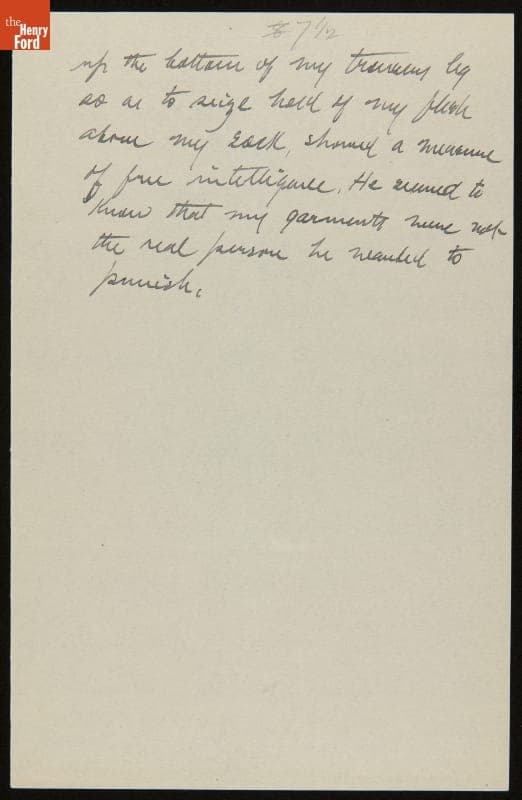 the
Henry
Ford
7 1/2
up the bottom of my trousers leg
so as to seize hold of my flesh
above my sock, showed a measure
of free intelligence. He seemed to
know that my garments were not
the real person he wanted to
punish.